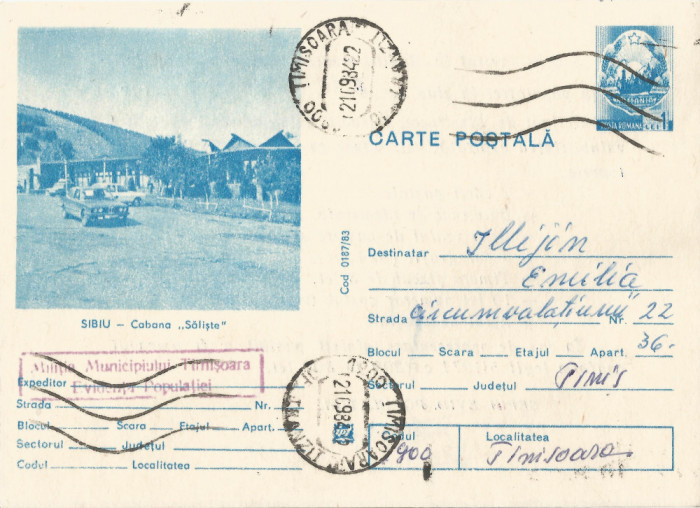 TIMISOARA
21 09 84 22
CARTE POȘTALĂ
POSTA ROMANA
1
SIBIU – Cabana „Săliște"
Cod 0187/83
Destinatar Illijin
Emilia
Strada Circumvalațiunii Nr. 22
Blocul Scara Etajul Apart. 36.
Sectorul Județul Timiș
Codul 1900
Localitatea Timisoara
Miliția Municipiului Timișoara
Evidența Populației
Expeditor
Strada Nr.
Blocul Scara Etajul Apart.
Sectorul Județul
Codul Localitatea
TIMISOARA
21 09 84